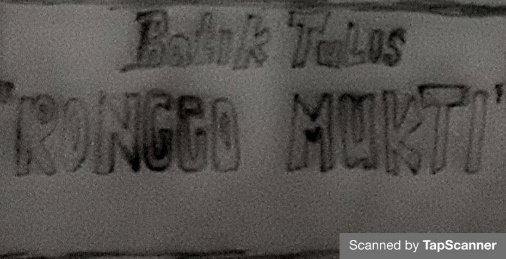 Batik Tulis
"RONGGO MUKTI"
Scanned by TapScanner